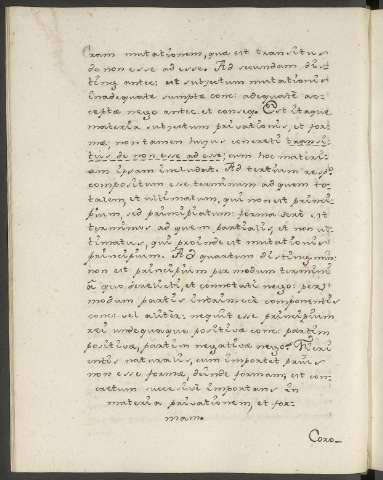 ram mutationem, quæ est transitus
de non esse ad esse. Ad secundam dis-
ting. antec: est subjectum mutationis
inadequate sumptæ conc: adequate ac-
ceptæ nego antec. et conseq. Est itaque
materia subjectum privationis, et for-
mæ; non tamen hujus concreti transi-
tus de non esse ad esse; cum hoc materi-
am ipsam includat. Ad tertium resp:
compositum esse terminum ad quem to-
talem et ultimatum, qui non est princi-
pium, sed principiatum: forma vero est
terminus ad quem partialis, et non ul-
timatus, qui proinde est mutationis
principium. Ad quartum disting. min:
non est principium per modum termini
à quo derelicti, et connotati nego: per
modum partis intrinsecè componentis
conc: vel aliter: nequit esse principium
rei undequaque positivæ conc: partim
positivæ, partim negativæ nego. Fieri
entis naturalis, cum importet prius
non esse formæ, deinde formam, est con-
cretum successive importans in
materia privationem, et for-
mam.
Coro-